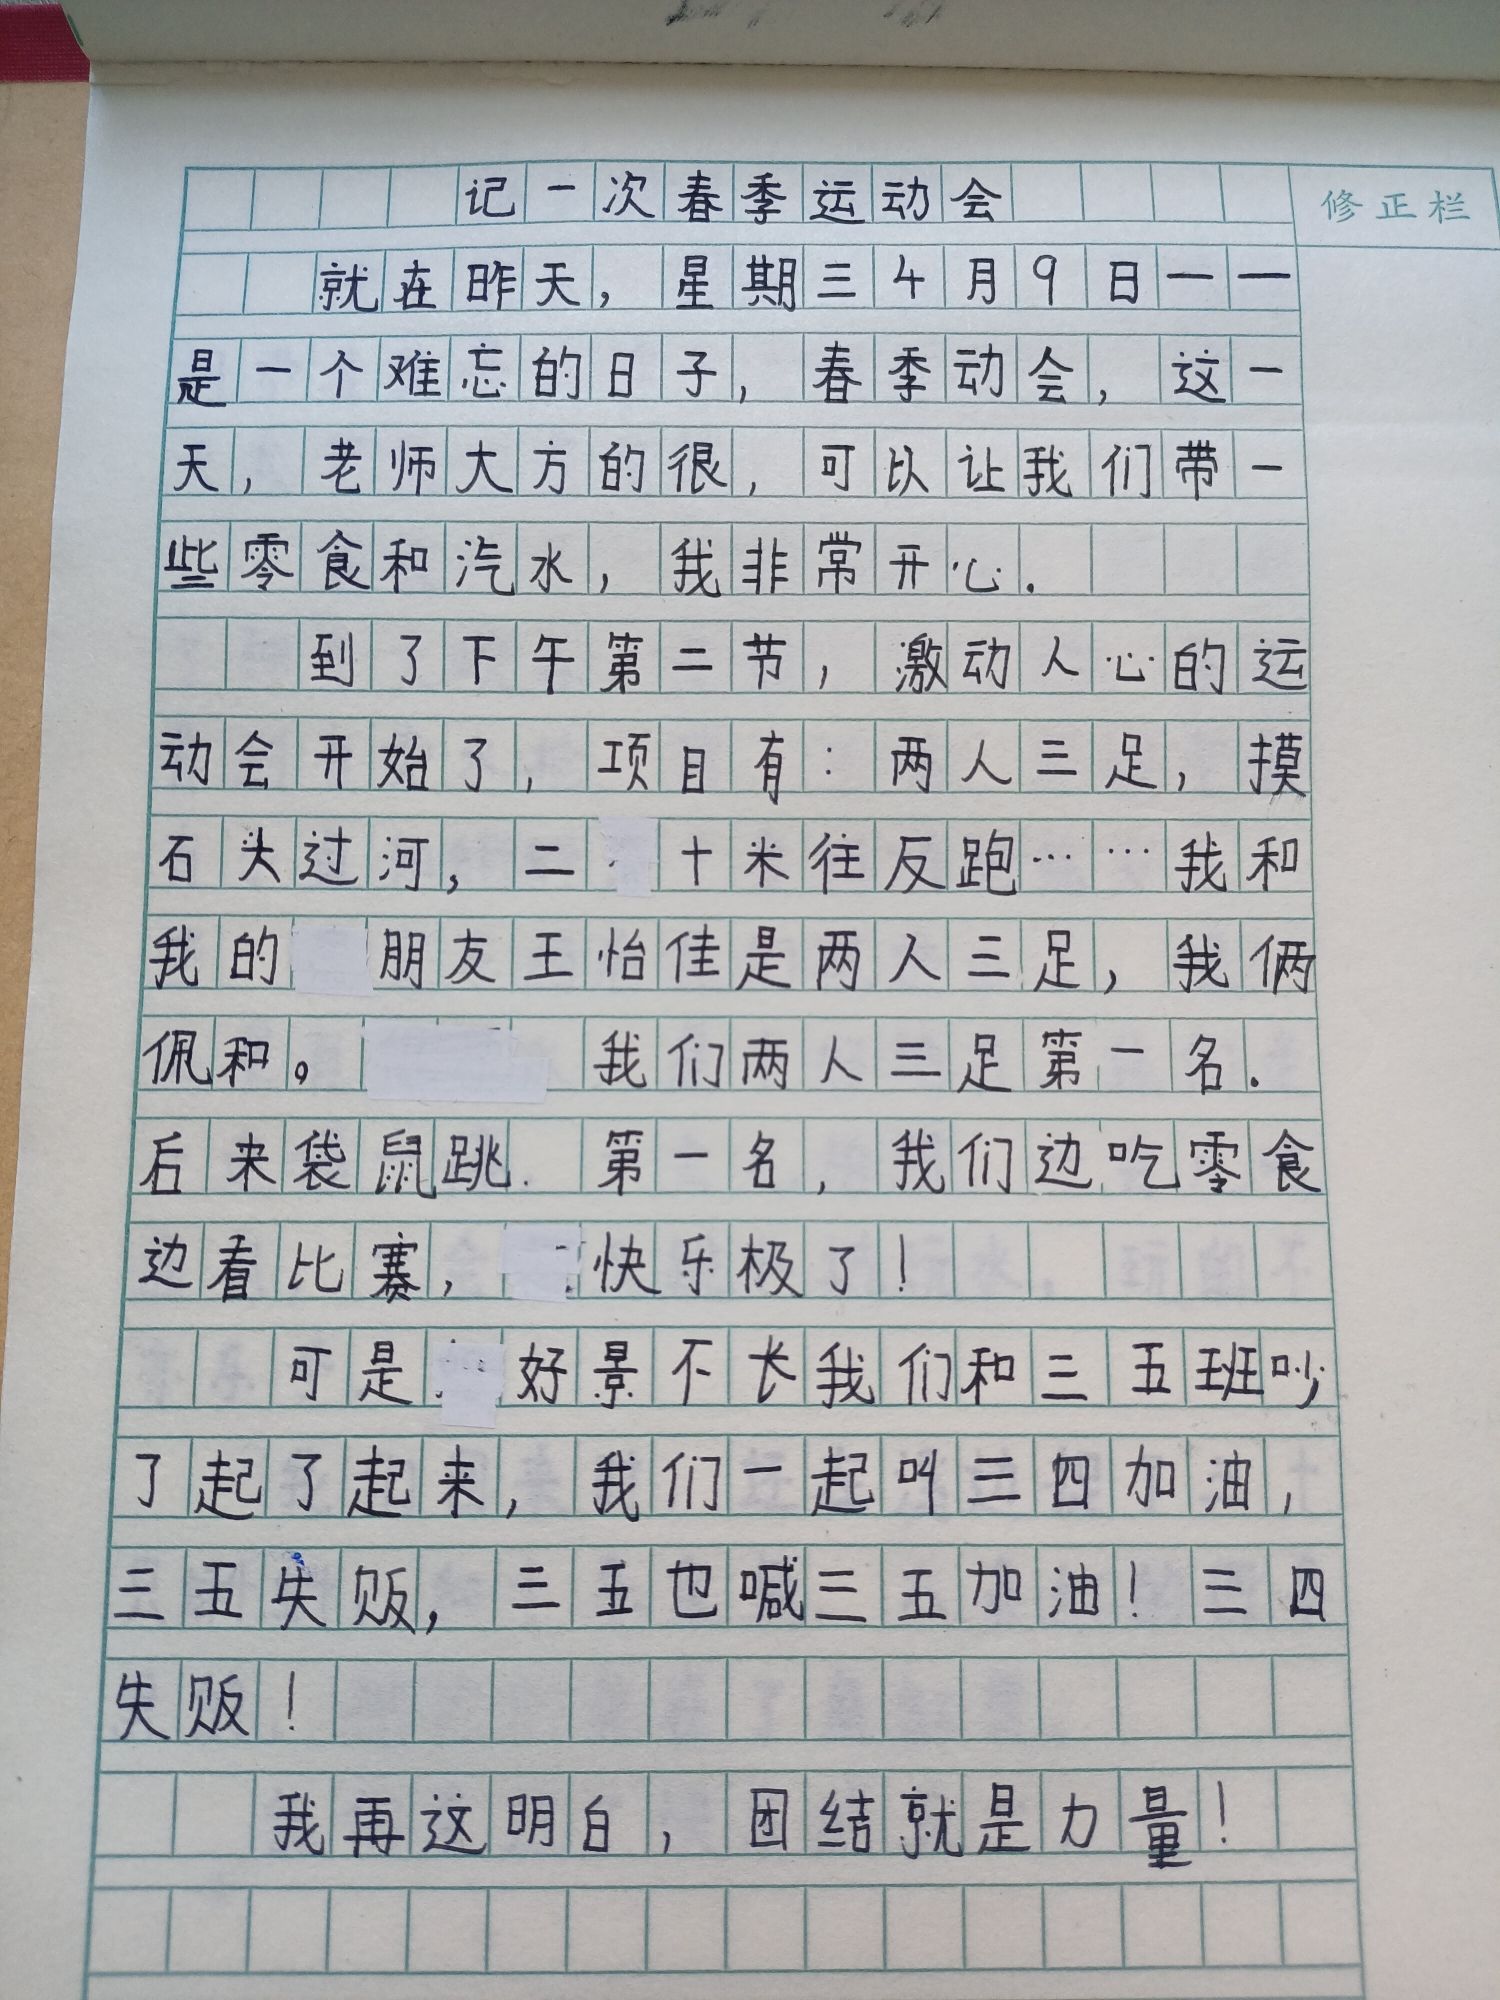 记一次春季运动会
修正栏
就在昨天，星期三4月9日——
是一个难忘的日子，春季动会，这一
天，老师大方的很，可以让我们带一
些零食和汽水，我非常开心.
到了下午第二节，激动人心的运
动会开始了，项目有：两人三足，摸
石头过河，二十米往反跑……我和
我的朋友王怡佳是两人三足，我俩
佩和。我们两人三足第一名.
后来袋鼠跳.第一名，我们边吃零食
边看比赛，快乐极了！
可是好景不长我们和三五班吵
了起了起来，我们一起叫三四加油，
三五失败，三五也喊三五加油！三四
失败！
我再这明白，团结就是力量！